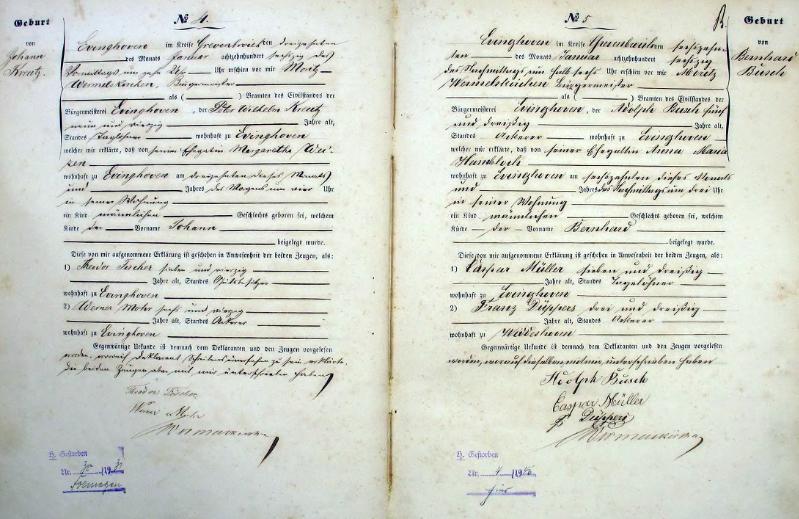 Geburt
von
Johann
Kreutz.
№ 4.
Evinghoven im Kreise Grevenbroich den dreizehnten
des Monats Januar achtzehnhundert sechszig des
Vormittags um zehn Uhr erschien vor mir Moritz
Wermelskirchen Bürgermeister
als ( ) Beamten des Civilstandes der
Bürgermeisterei Evinghoven, der Peter Wilhelm Kreutz
neun und vierzig Jahre alt,
Standes Taglöhner wohnhaft zu Evinghoven
welcher mir erklärte, daß von seiner Ehegattin Margaretha
wohnhaft zu Evinghoven am dreizehnten dieses Monats
und Jahres des Morgens um vier Uhr
in seiner Wohnung
ein Kind männlichen Geschlechts geboren sei, welchem
Kinde der Vorname Johann
beigelegt wurde.
Diese von mir aufgenommene Erklärung ist geschehen in Anwesenheit der beiden Zeugen, als:
1) Theodor Fischer sieben und vierzig
Jahre alt, Standes
wohnhaft zu Evinghoven
2) Werner Mohr sechs und vierzig
Jahre alt, Standes Ackerer
wohnhaft zu Evinghoven
Gegenwärtige Urkunde ist demnach dem Deklaranten und den Zeugen vorgelesen
worden, womit Deklarant Schreibens unerfahren zu sein erklärte.
Die beiden Zeugen aber mit mir unterschrieben haben
Theodor Fischer
Werner Mohr
Wermelskirchen
H. Gestorben
Nr.
№ 5
Evinghoven im Kreise Grevenbroich den sechszehn
ten des Monats Januar achtzehnhundert sechszig
des Nachmittags um halb sechs Uhr erschien vor mir Moritz
Wermelskirchen Bürgermeister
als ( ) Beamten des Civilstandes der
Bürgermeisterei Evinghoven, der Adolph Busch fünf
und dreißig Jahre alt,
Standes Ackerer wohnhaft zu Evinghoven
welcher mir erklärte, daß von seiner Ehegattin Anna Maria
Hambloch
wohnhaft zu Evinghoven am sechszehnten dieses Monats
und Jahres des Nachmittags um drei Uhr
in seiner Wohnung
ein Kind männlichen Geschlechts geboren sei, welchem
Kinde der Vorname Bernhard
beigelegt wurde.
Diese von mir aufgenommene Erklärung ist geschehen in Anwesenheit der beiden Zeugen, als:
1) Caspar Müller sieben und dreißig
Jahre alt, Standes Tagelöhner
wohnhaft zu Evinghoven
2) Franz Düppers drei und dreißig
Jahre alt, Standes Ackerer
wohnhaft zu Widdeshoven
Gegenwärtige Urkunde ist demnach dem Deklaranten und den Zeugen vorgelesen
worden, worauf dieselben mit mir unterschrieben haben
Adolph Busch
Caspar Müller
Düppers
Wermelskirchen
H. Gestorben
Nr.
hier
B.
Geburt
von
Bernhard
Busch